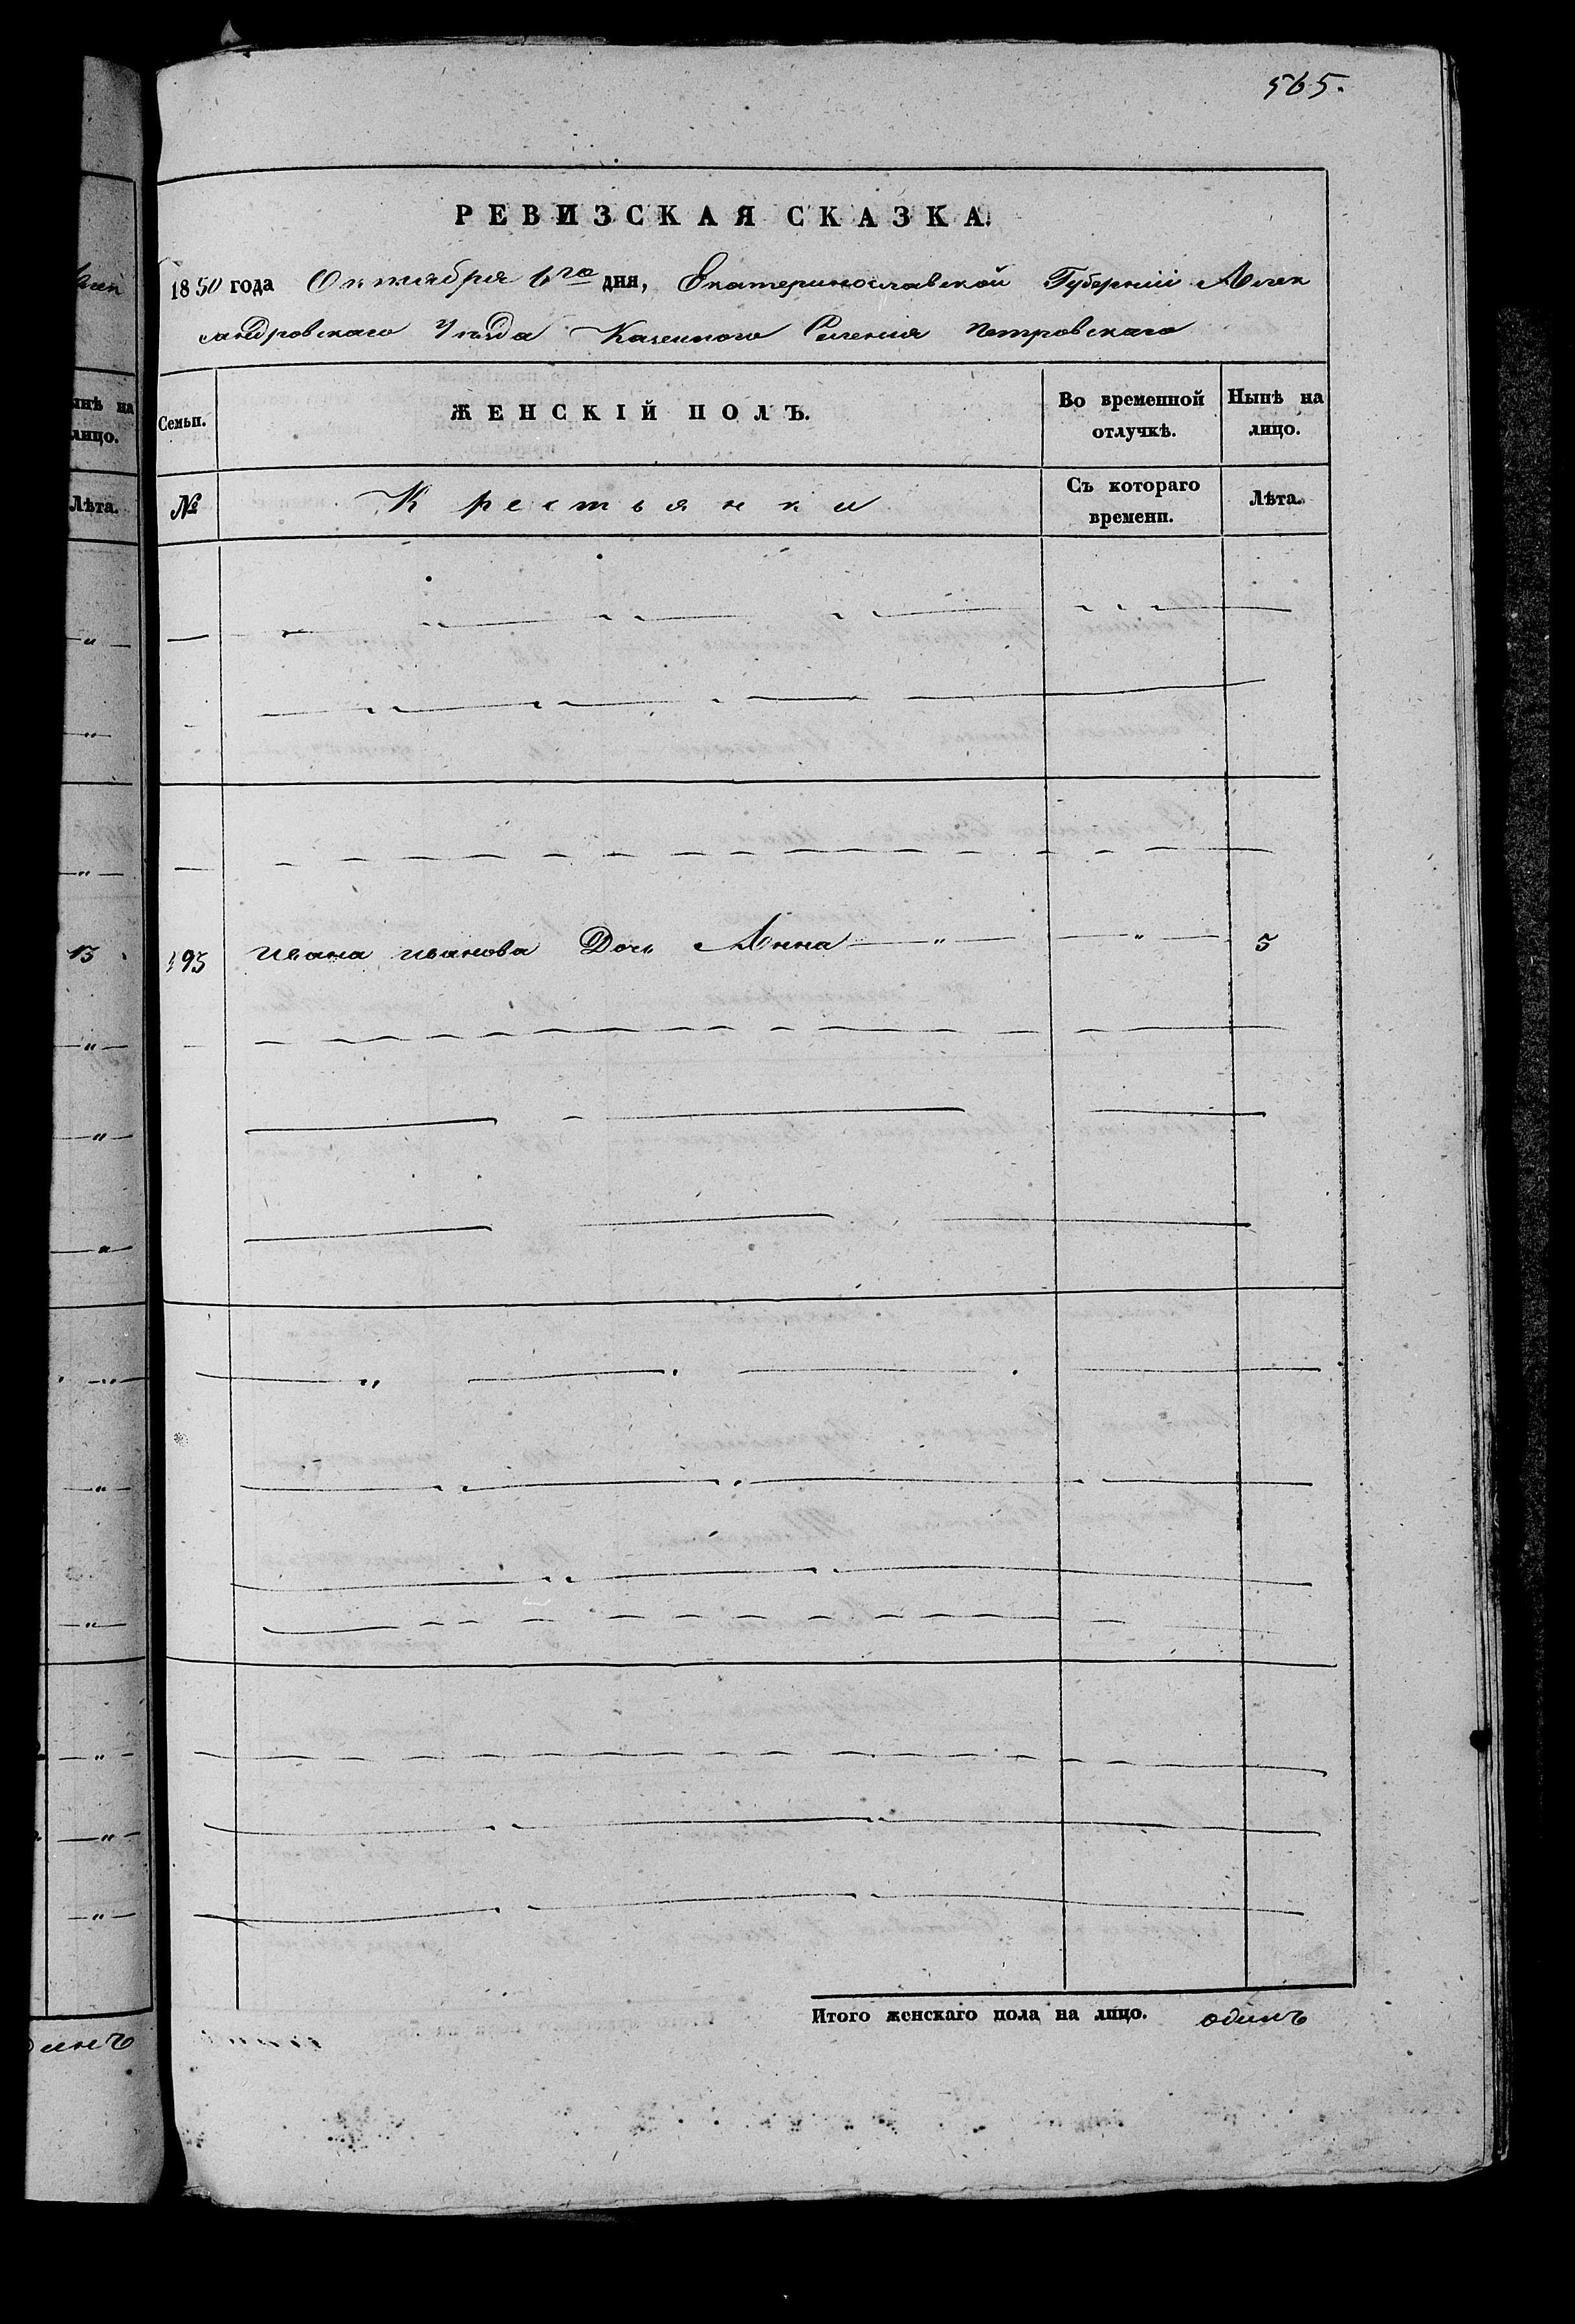 565.
РЕВИЗСКАЯ СКАЗКА.
1850 года Октября 6го дня, Екатеринославской Губерніи Алек
сандровскаго Уѣзда Казенного Селенія Петровскаго
ынѣ на
лицо.
Лѣта.
Семьи.
ЖЕНСКІЙ ПОЛЪ.
Во временной
отлучкѣ.
Нынѣ на
лицо.
№
Крестьянки
Съ котораго
времени.
Лѣта.
13
193 Ивана Иванова Дочь Анна — „ — — „ — 5
Итого женскаго пола на лицо. одинъ
динъ